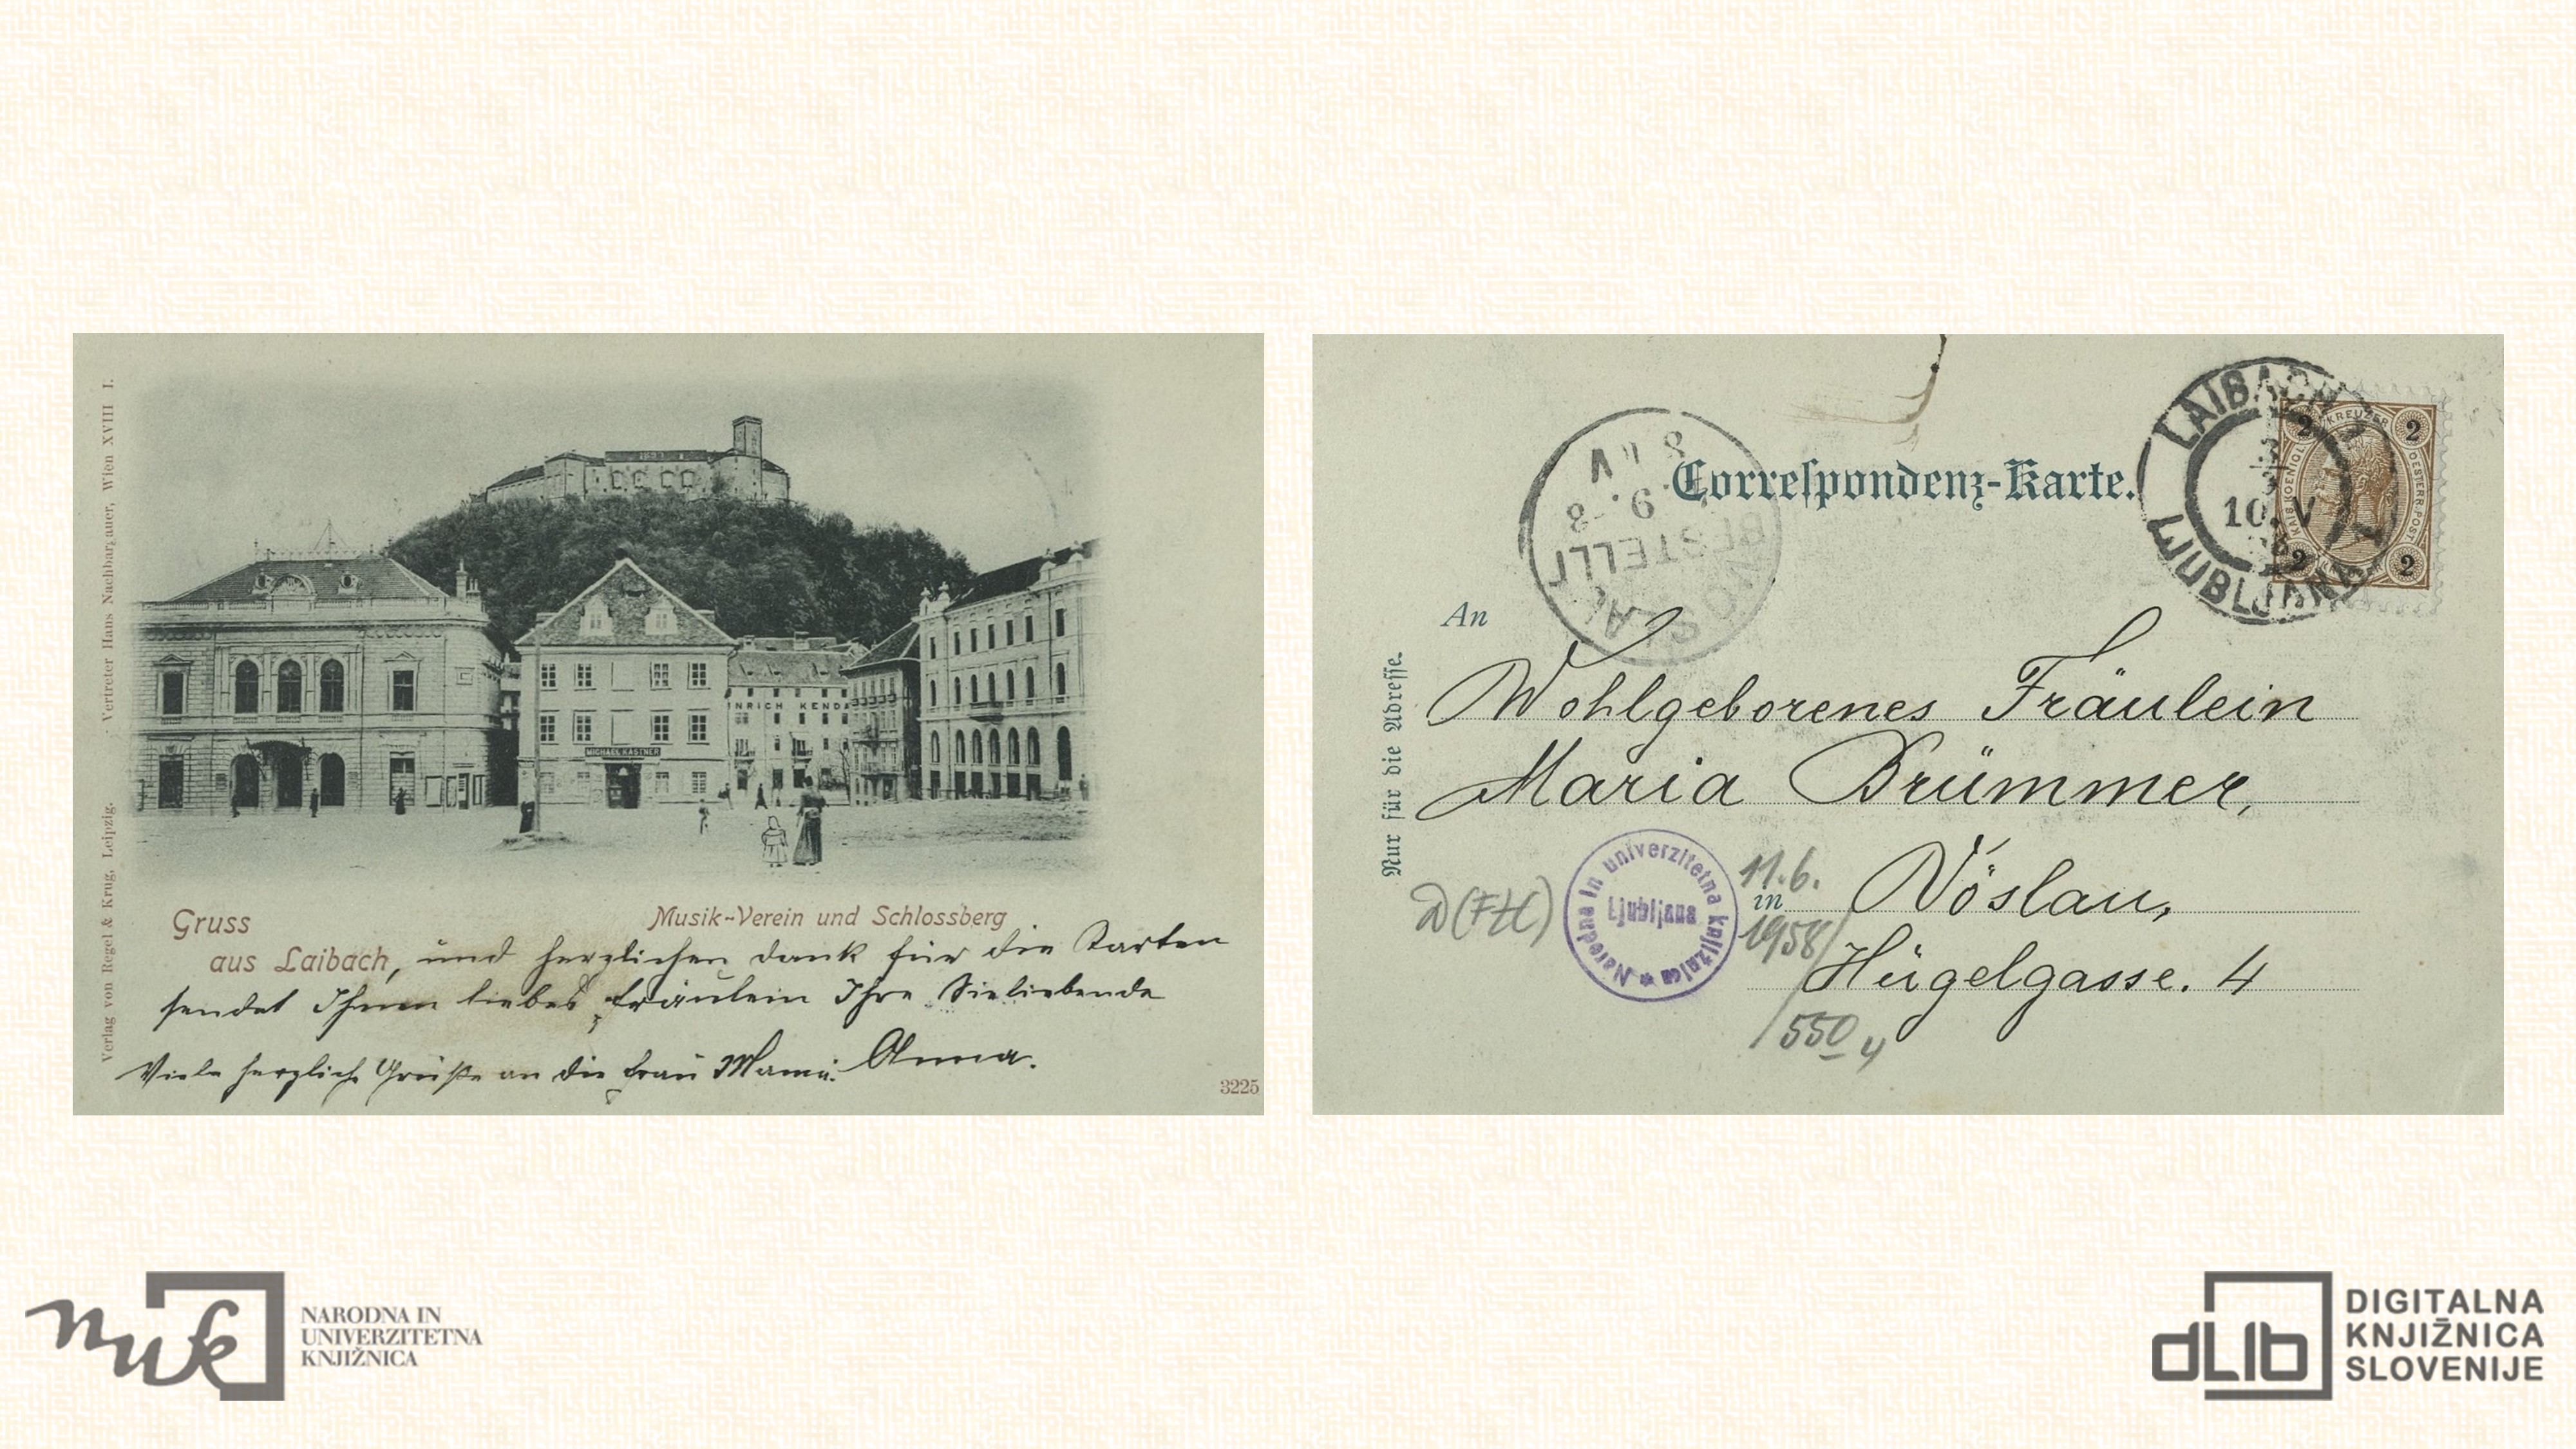 Verlag von Regel & Krug, Leipzig. Vertreter Hans Nachbargauer, Wien XVIII I.
1897
INRICH KENDA
MICHAEL KASTNER
Gruss
Musik-Verein und Schlossberg
aus Laibach, und herzlichen dank für die Karten
sendet Ihnen liebes Fräulein Ihre Sieliebende
Viele herzliche Grüße an die Frau Mama. Anna.
3225
Correspondenz-Karte.
LAIBACH
10.V
LJUBLJANA
2 KREUZER 2
KAIS. KOENIGL. OESTERR. POST
2 2
BESTELLT
VÖSLAU
8.V
9-8
An
Nur für die Adresse.
Wohlgeborenes Fräulein
Maria Brümmer,
in Vöslau,
Hügelgasse. 4
Narodna in univerzitetna knjižnica
Ljubljana
D(FH)
11.6.
1958/
550 4
nuk
NARODNA IN
UNIVERZITETNA
KNJIŽNICA
dLib
DIGITALNA
KNJIŽNICA
SLOVENIJE